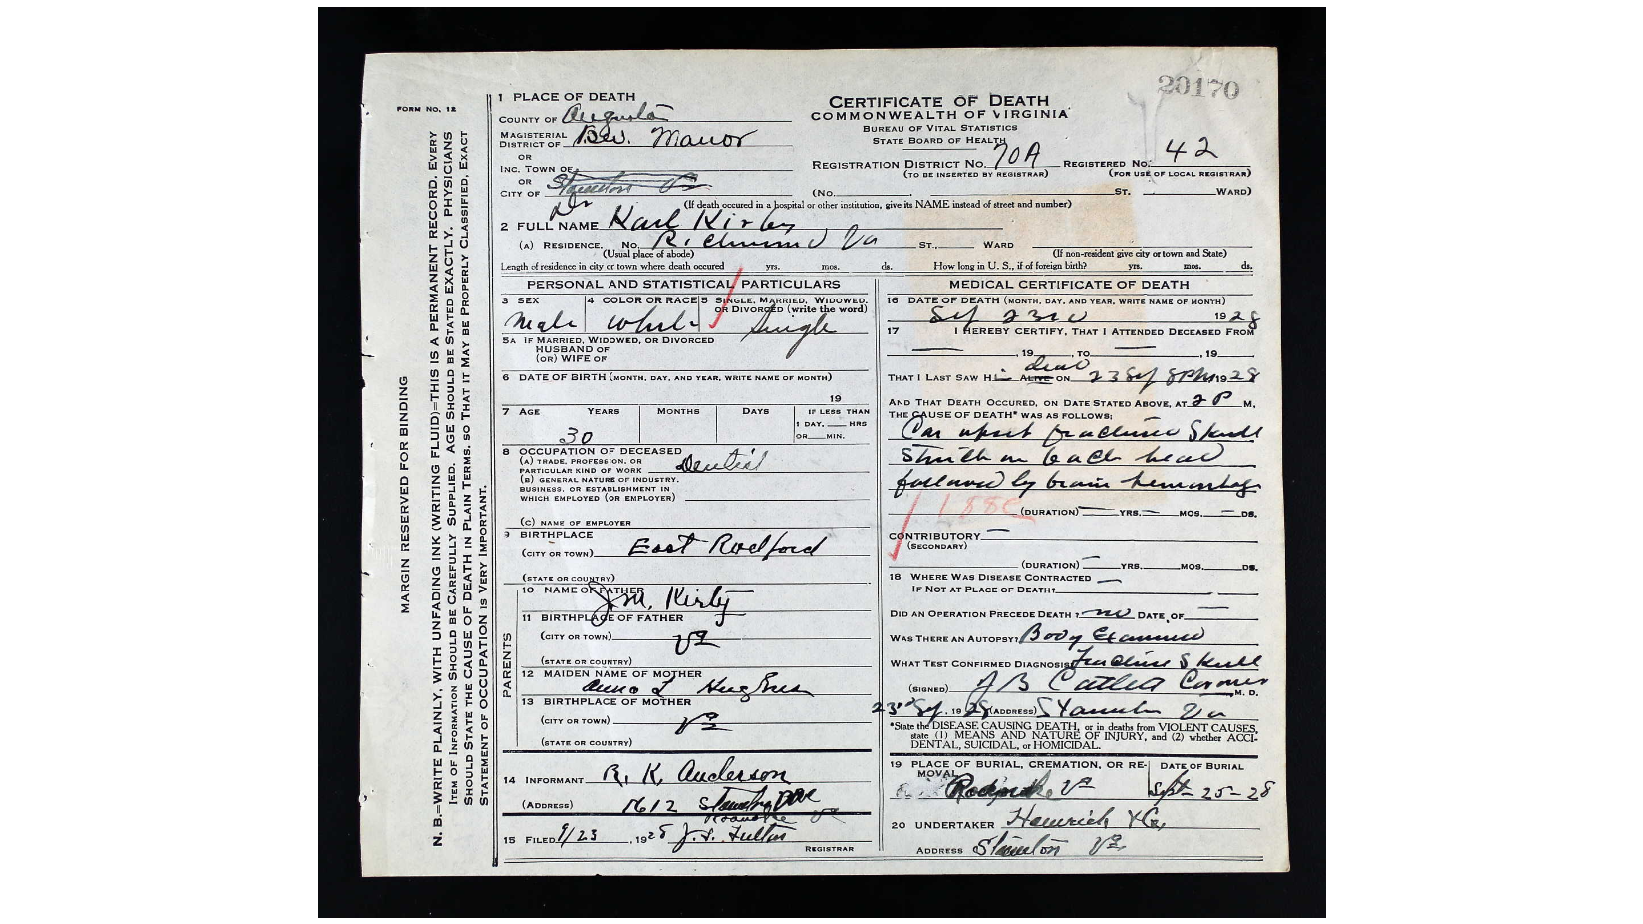 20170
FORM NO. 12
MARGIN RESERVED FOR BINDING
N. B.—WRITE PLAINLY, WITH UNFADING INK (WRITING FLUID)—THIS IS A PERMANENT RECORD. EVERY
ITEM OF INFORMATION SHOULD BE CAREFULLY SUPPLIED. AGE SHOULD BE STATED EXACTLY. PHYSICIANS
SHOULD STATE THE CAUSE OF DEATH IN PLAIN TERMS, SO THAT IT MAY BE PROPERLY CLASSIFIED. EXACT
STATEMENT OF OCCUPATION IS VERY IMPORTANT.
CERTIFICATE OF DEATH
COMMONWEALTH OF VIRGINIA
BUREAU OF VITAL STATISTICS
STATE BOARD OF HEALTH
1 PLACE OF DEATH
COUNTY OF Augusta
MAGISTERIAL DISTRICT OF Bev. Manor
OR
INC. TOWN OF
OR
CITY OF Staunton Va
REGISTRATION DISTRICT NO. 70A REGISTERED NO. 42
(TO BE INSERTED BY REGISTRAR) (FOR USE OF LOCAL REGISTRAR)
(No. ST. WARD)
(If death occured in a hospital or other institution, give its NAME instead of street and number)
2 FULL NAME Dr Karl Kirby
(A) RESIDENCE. No. Richmond Va ST., WARD
(Usual place of abode) (If non-resident give city or town and State)
Length of residence in city or town where death occured yrs. mos. ds. How long in U. S., if of foreign birth? yrs. mos. ds.
PERSONAL AND STATISTICAL PARTICULARS
3 SEX 4 COLOR OR RACE 5 SINGLE, MARRIED, WIDOWED, OR DIVORCED (write the word)
Male White Single
5A IF MARRIED, WIDOWED, OR DIVORCED
HUSBAND OF
(OR) WIFE OF
6 DATE OF BIRTH (MONTH, DAY, AND YEAR, WRITE NAME OF MONTH)
19
7 AGE YEARS MONTHS DAYS IF LESS THAN
1 DAY, HRS
OR MIN.
30
8 OCCUPATION OF DECEASED
(A) TRADE, PROFESSION, OR
PARTICULAR KIND OF WORK Dentist
(B) GENERAL NATURE OF INDUSTRY,
BUSINESS, OR ESTABLISHMENT IN
WHICH EMPLOYED (OR EMPLOYER)
(C) NAME OF EMPLOYER
9 BIRTHPLACE
(CITY OR TOWN) East Radford
(STATE OR COUNTRY)
PARENTS
10 NAME OF FATHER J.M. Kirby
11 BIRTHPLACE OF FATHER
(CITY OR TOWN) Va
(STATE OR COUNTRY)
12 MAIDEN NAME OF MOTHER
Anna L Hughes
13 BIRTHPLACE OF MOTHER
(CITY OR TOWN) Va
(STATE OR COUNTRY)
14 INFORMANT R. K. Anderson
(ADDRESS) 1612 Ave
Roanoke Va
15 FILED 9/23, 1928 J.S. Fultus
REGISTRAR
MEDICAL CERTIFICATE OF DEATH
16 DATE OF DEATH (MONTH, DAY, AND YEAR, WRITE NAME OF MONTH)
Sep 23rd 1928
17 I HEREBY CERTIFY, THAT I ATTENDED DECEASED FROM
, 19 , TO , 19
THAT I LAST SAW HI dead ALIVE ON 23 Sep 8PM 1928
AND THAT DEATH OCCURED, ON DATE STATED ABOVE, AT 2 P M.
THE CAUSE OF DEATH* WAS AS FOLLOWS:
Car upset fractured Skull
Struck on back head
followed by brain hemorrhage
188C
(DURATION) YRS. MOS. DS.
CONTRIBUTORY
(SECONDARY)
(DURATION) YRS. MOS. DS.
18 WHERE WAS DISEASE CONTRACTED
IF NOT AT PLACE OF DEATH?
DID AN OPERATION PRECEDE DEATH? no DATE OF
WAS THERE AN AUTOPSY? Body Examined
WHAT TEST CONFIRMED DIAGNOSIS Fracture Skull
(SIGNED) J B Catlett Coroner M. D.
23rd Sep. 1928 (ADDRESS) Staunton Va
*State the DISEASE CAUSING DEATH, or in deaths from VIOLENT CAUSES,
state (1) MEANS AND NATURE OF INJURY, and (2) whether ACCI-
DENTAL, SUICIDAL, or HOMICIDAL.
19 PLACE OF BURIAL, CREMATION, OR RE-MOVAL DATE OF BURIAL
Va Sept 25-28
20 UNDERTAKER
ADDRESS Staunton Va